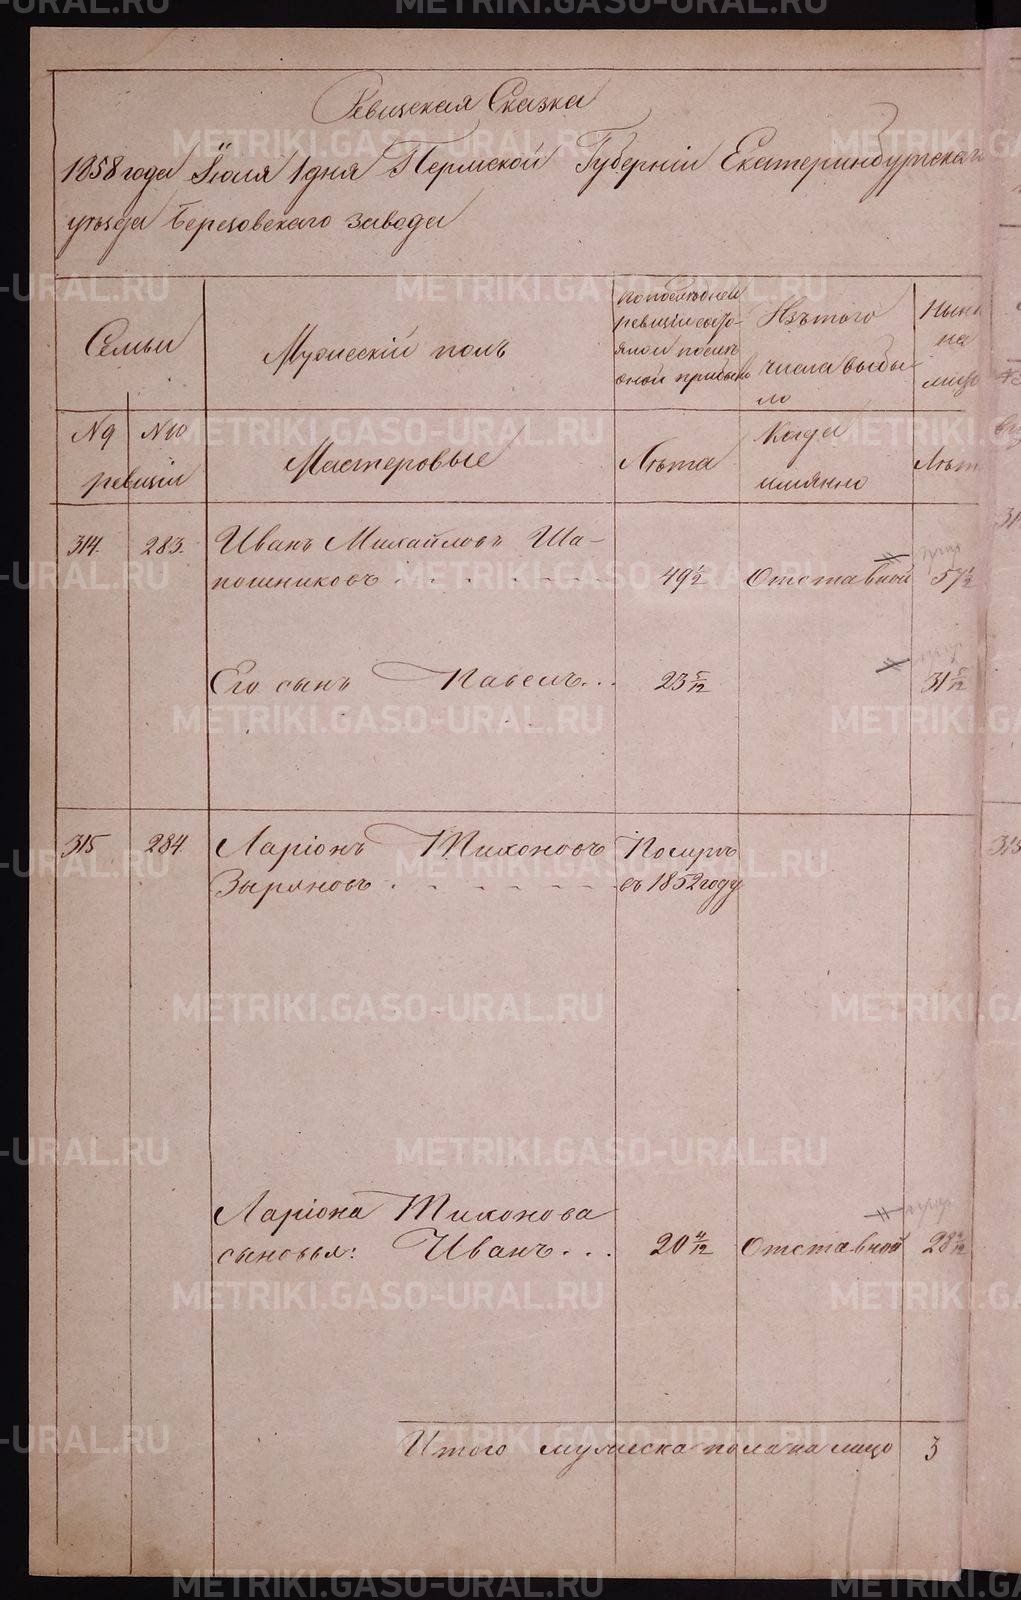 Ревизская Сказка
1858 года Іюля 1 дня Пермской Губерніи Екатеринбургскаго
уѣзда Березовскаго завода
Семьи
Мужескій полъ
По послѣдней
ревизіи состо-
яло и послѣ
оной прибыло
Изъ того
числа выбы-
ло
на
лицо
№ 9
№ 10
ревизіи
Мастеровые
Лѣта
Когда
имянно
Лѣта
314.
283.
Иванъ Михайловъ Ша-
пошниковъ . . . . . . . .
49 1/2
Отставной
57 1/2
Его сынъ Павелъ . . .
23 5/12
31 5/12
315
284.
Ларіонъ Тихоновъ
Зыряновъ . . . . . . . .
Померъ
въ 1852 году
Ларіона Тихонова
сыновья: Иванъ . . .
20 4/12
Отставной
28 4/12
Итого мужеска пола на лицо
3
METRIKI.GASO-URAL.RU